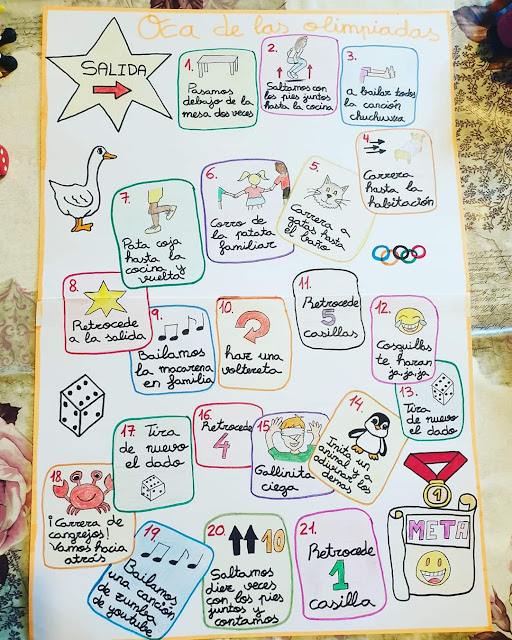 Oca de las olimpiadas
SALIDA
1.
Pasamos
debajo de la
mesa dos veces
2.
Saltamos con
los pies juntos
hasta la cocina
3.
a bailar todos
la canción
chuchuwa
4.
Carrera
hasta la
habitación
5.
Carrera a
gatas hasta
el baño
6.
Corro de
la patata
familiar
7.
Pata coja
hasta la
cocina y
vuelta
8.
Retrocede
a la salida
9.
Bailamos
la macarena
en familia
10.
haz una
voltereta
11.
Retrocede
5
casillas
12.
Cosquillas
te harán
ja, ja, ja
13.
Tira
de nuevo
el dado
14.
Imita un
animal y a
adivinar los
demás
15.
Gallinita
ciega
16.
Retrocede
4
17.
Tira
de nuevo
el dado
18.
¡Carrera de
cangrejos!
Vamos hacia
atrás
19
Bailamos
una canción
de zumba
de youtube
20.
10
Saltamos
diez veces
con los pies
juntos y
contamos
21.
Retrocede
1
casilla
1
META